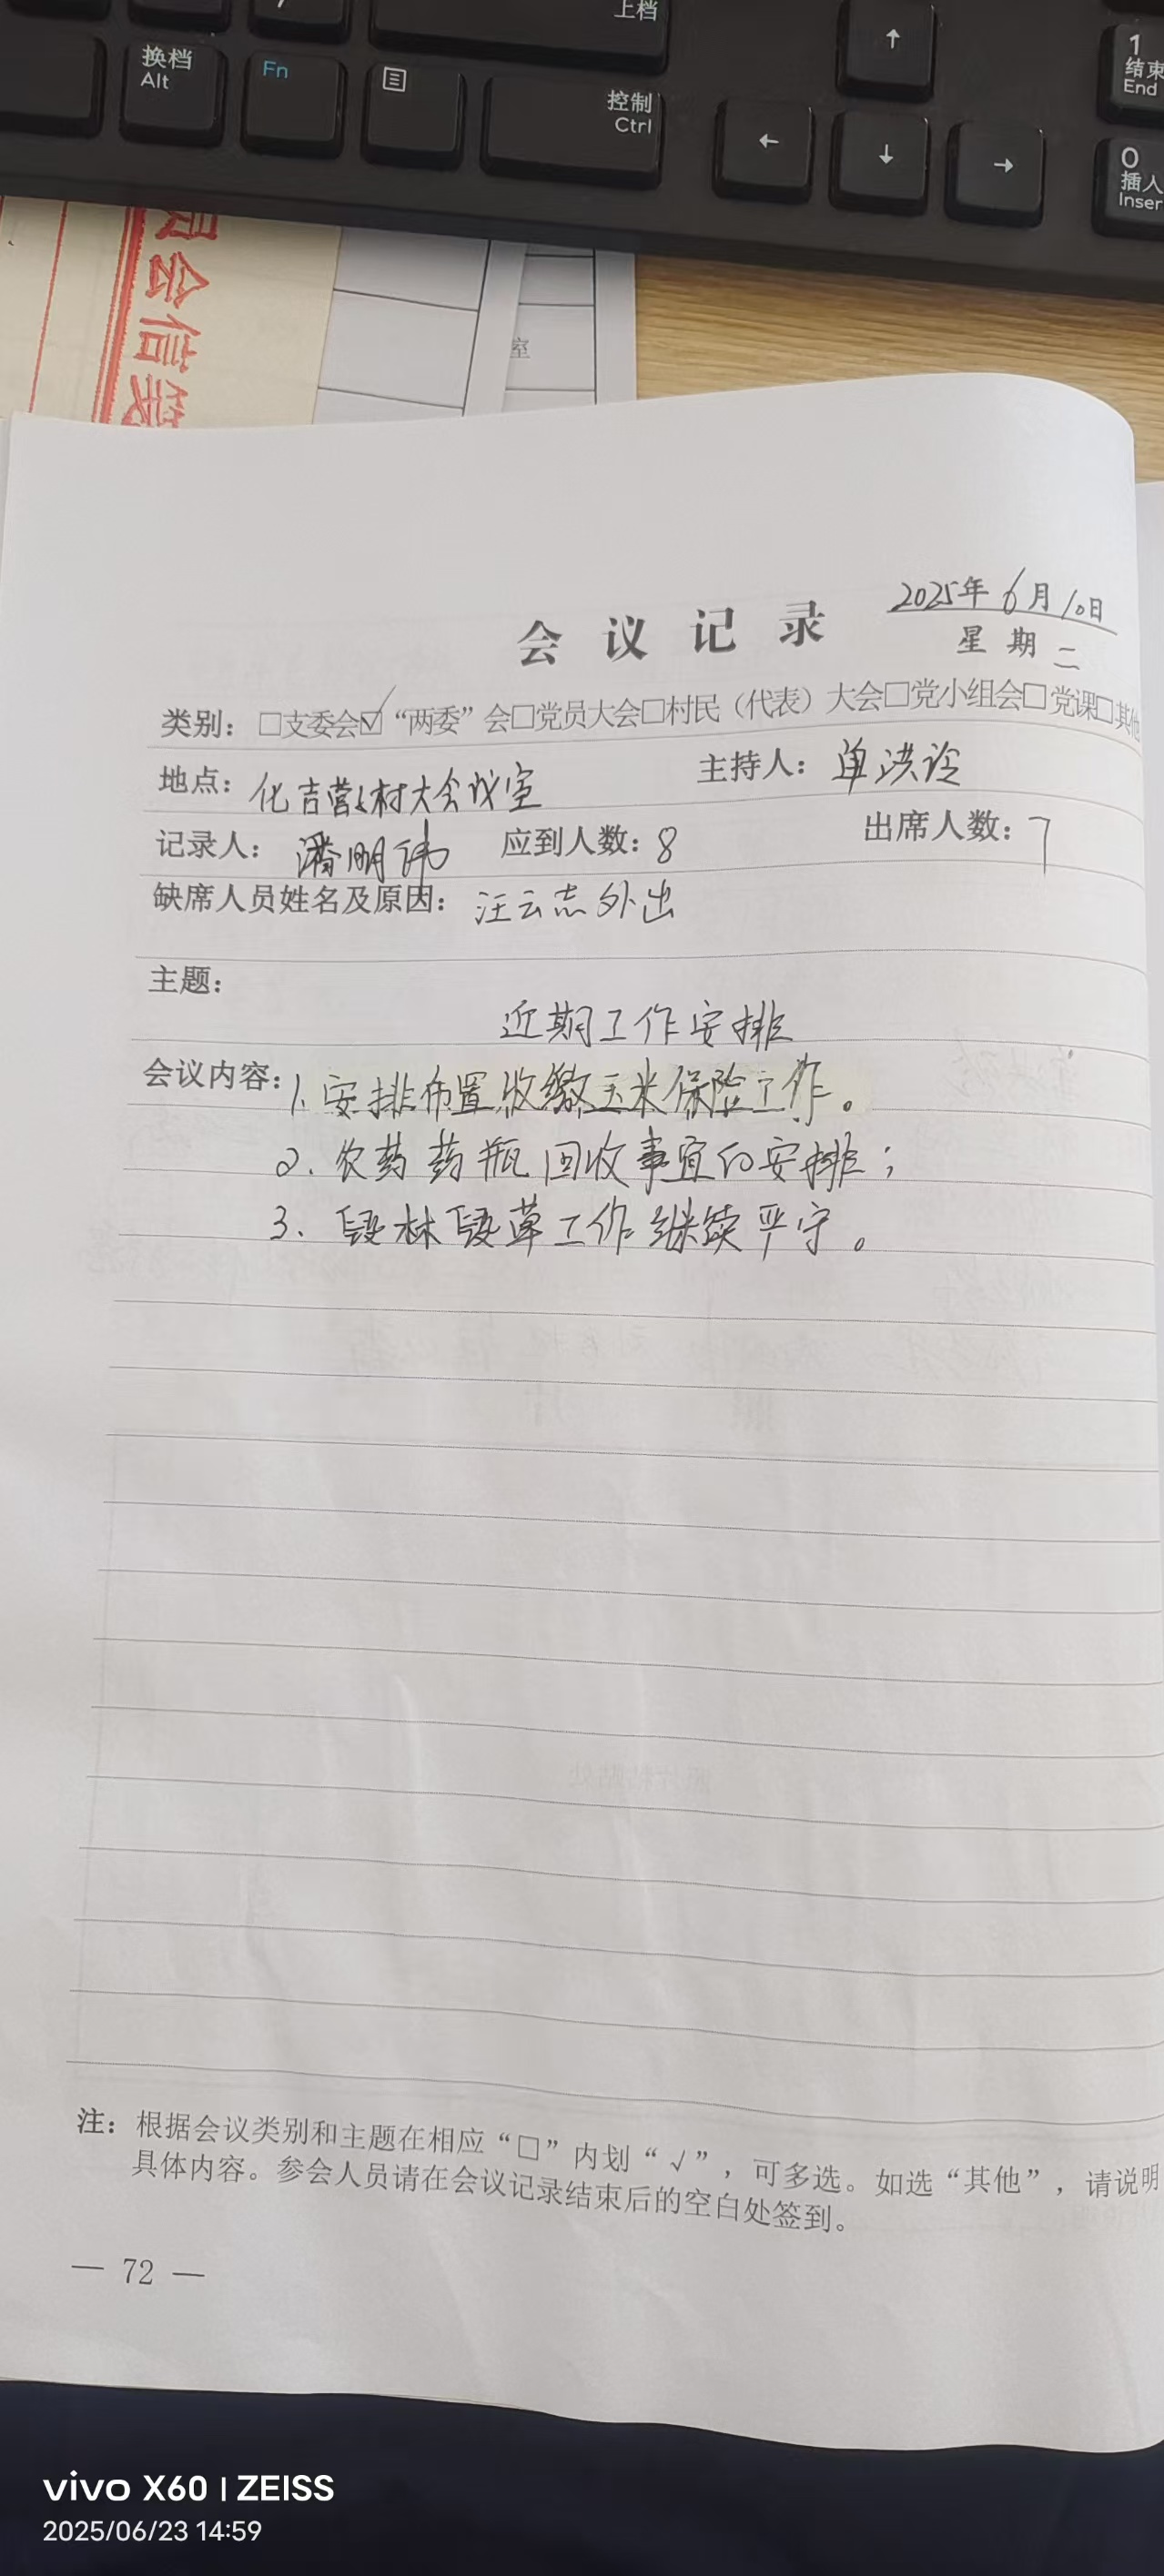 上档
换档
Alt
Fn
控制
Ctrl
↑
←
↓
→
1
结束
End
0
插入
Inser
员会信笺
室
2025年6月10日
会议记录
星期二
类别：□支委会☑“两委”会□党员大会□村民（代表）大会□党小组会□党课□其他
地点：化吉营子村大会议室 主持人：单洪玲
记录人：潘明伟 应到人数：8 出席人数：7
缺席人员姓名及原因：汪云志外出
主题：
近期工作安排
会议内容：1、安排布置收缴玉米保险工作。
2、农药药瓶回收事宜的安排；
3、毁林毁草工作继续严守。
注：根据会议类别和主题在相应“□”内划“√”，可多选。如选“其他”，请说明
具体内容。参会人员请在会议记录结束后的空白处签到。
— 72 —
vivo X60 | ZEISS
2025/06/23 14:59